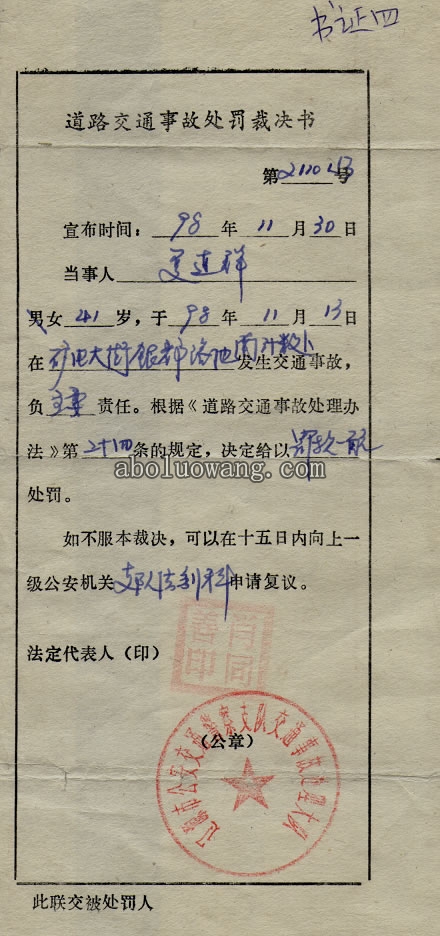 书证四
道路交通事故处罚裁决书
第2110213号
宣布时间：98年11月30日
当事人 连祥
男女41岁，于98年11月13日
在矿电大街银都 发生交通事故，
负主要责任。根据《道路交通事故处理办
法》第二十四条的规定，决定给以罚款一百元
aboluowang.com
处罚。
如不服本裁决，可以在十五日内向上一
级公安机关支队法制科申请复议。
法定代表人（印）
（公章）
市公安交通警察支队交通事故处理大队
此联交被处罚人